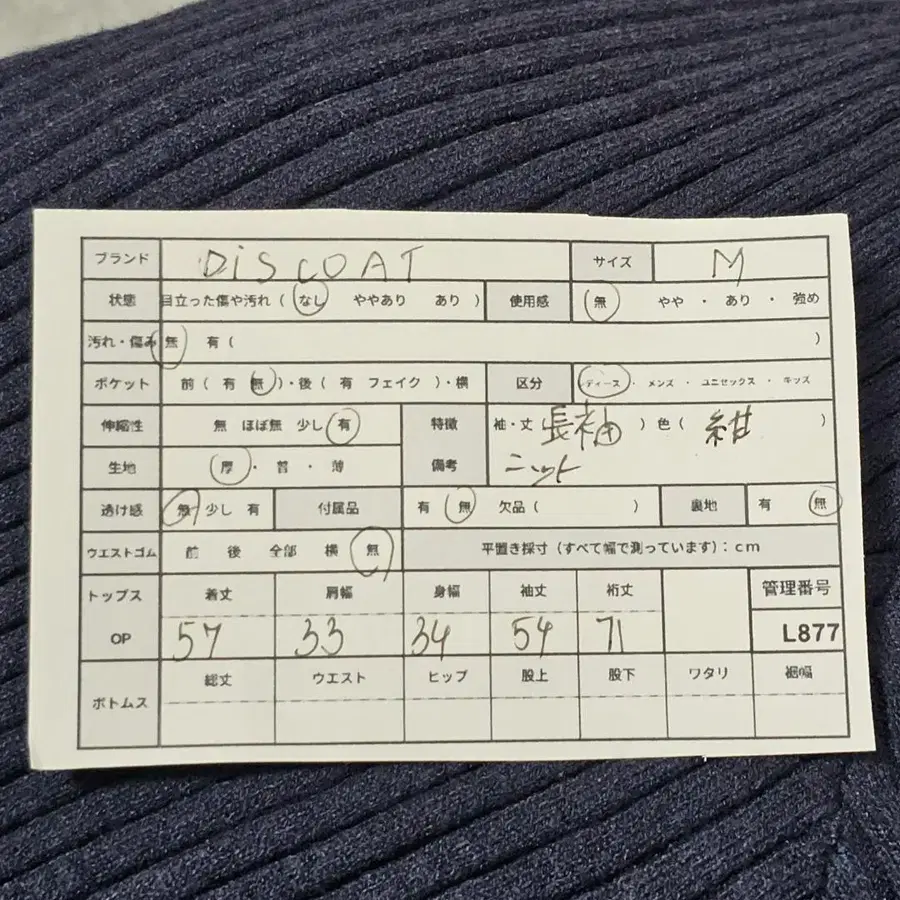 ブランド DiSCOAT サイズ M
状態 目立った傷や汚れ ( なし ややあり あり ) 使用感 無 やや ・ あり ・ 強め
汚れ・傷み 無 有 ( )
ポケット 前 ( 有 無 )・後 ( 有 フェイク )・横 区分 ディース ・ メンズ ・ ユニセックス ・ キッズ
伸縮性 無 ほぼ無 少し 有 特徴 袖・丈 長袖 ) 色 ( 紺 )
生地 厚 ・ 普 ・ 薄 備考 ニット
透け感 無 少し 有 付属品 有 無 欠品 ( ) 裏地 有 無
ウエストゴム 前 後 全部 横 無 平置き採寸 (すべて幅で測っています) : cm
トップス 着丈 肩幅 身幅 袖丈 裄丈 管理番号
OP 57 33 34 54 71 L877
ボトムス 総丈 ウエスト ヒップ 股上 股下 ワタリ 裾幅